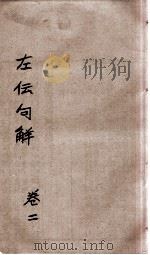 左伝句解
卷二
研狗
www.toutu.info